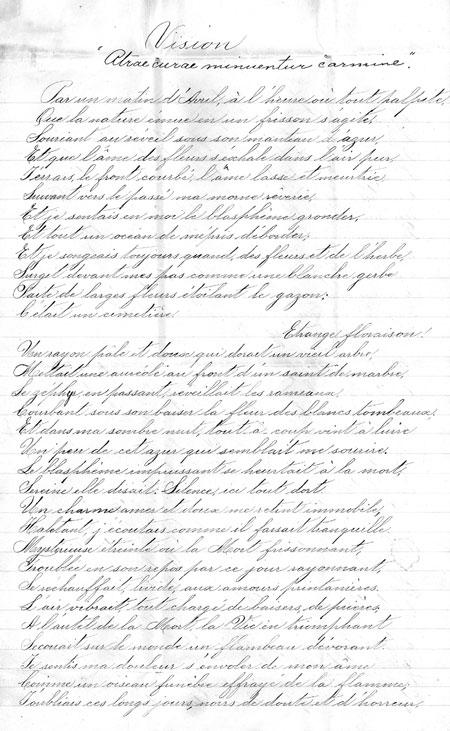 Vision
"Atrae curae minuentur carmine".
Par un matin d'Avril, à l'heure où tout palpite,
Que la nature émue en un frisson s'agite,
Souriant au réveil sous son manteau d'azur,
Et que l'âme des fleurs s'exhale dans l'air pur,
J'errais, le front courbé, l'âme lasse et meurtrie
Suivant vers le passé ma morne rêverie,
Et je sentais en moi le blasphème gronder,
Et tout un océan de mépris déborder;
Et je songeais toujours quand, des fleurs et de l'herbe,
Surgit devant mes pas comme une blanche gerbe
Faite de larges fleurs étoilant le gazon;
C'était un cimetière
Etrange floraison!
Un rayon pâle et doux qui dorait un vieil arbre,
Mettait une auréole au front d'un saint de marbre,
Le zéphyr, en passant, réveillait les rameaux,
Courbant sous son baiser la fleur des blancs tombeaux,
Et dans ma sombre nuit, tout à coup vint à luire
Un peu de cet azur qui semblait me sourire.
Le blasphème impuissant se heurtait à la mort,
Sereine elle disait: Silence, ici tout dort.
Un charme amer et doux me retint immobile,
Habitant, j'écoutais comme il faisait tranquille.
Mystérieuse étreinte où la Mort frissonnant,
Troublée en son repos par ce jour rayonnant,
Se réchauffait, livide, aux amours printanières.
L'air vibrait, tout chargé de baisers, de prières,
A l'autel de la Mort, la Vie en triomphant
Secouait sur le monde un flambeau dévorant.
Je sentis ma douleur s'envoler de mon âme
Comme un oiseau funèbre effrayé de la flamme,
J'oubliais ces longs jours, noirs de doute et d'horreur,